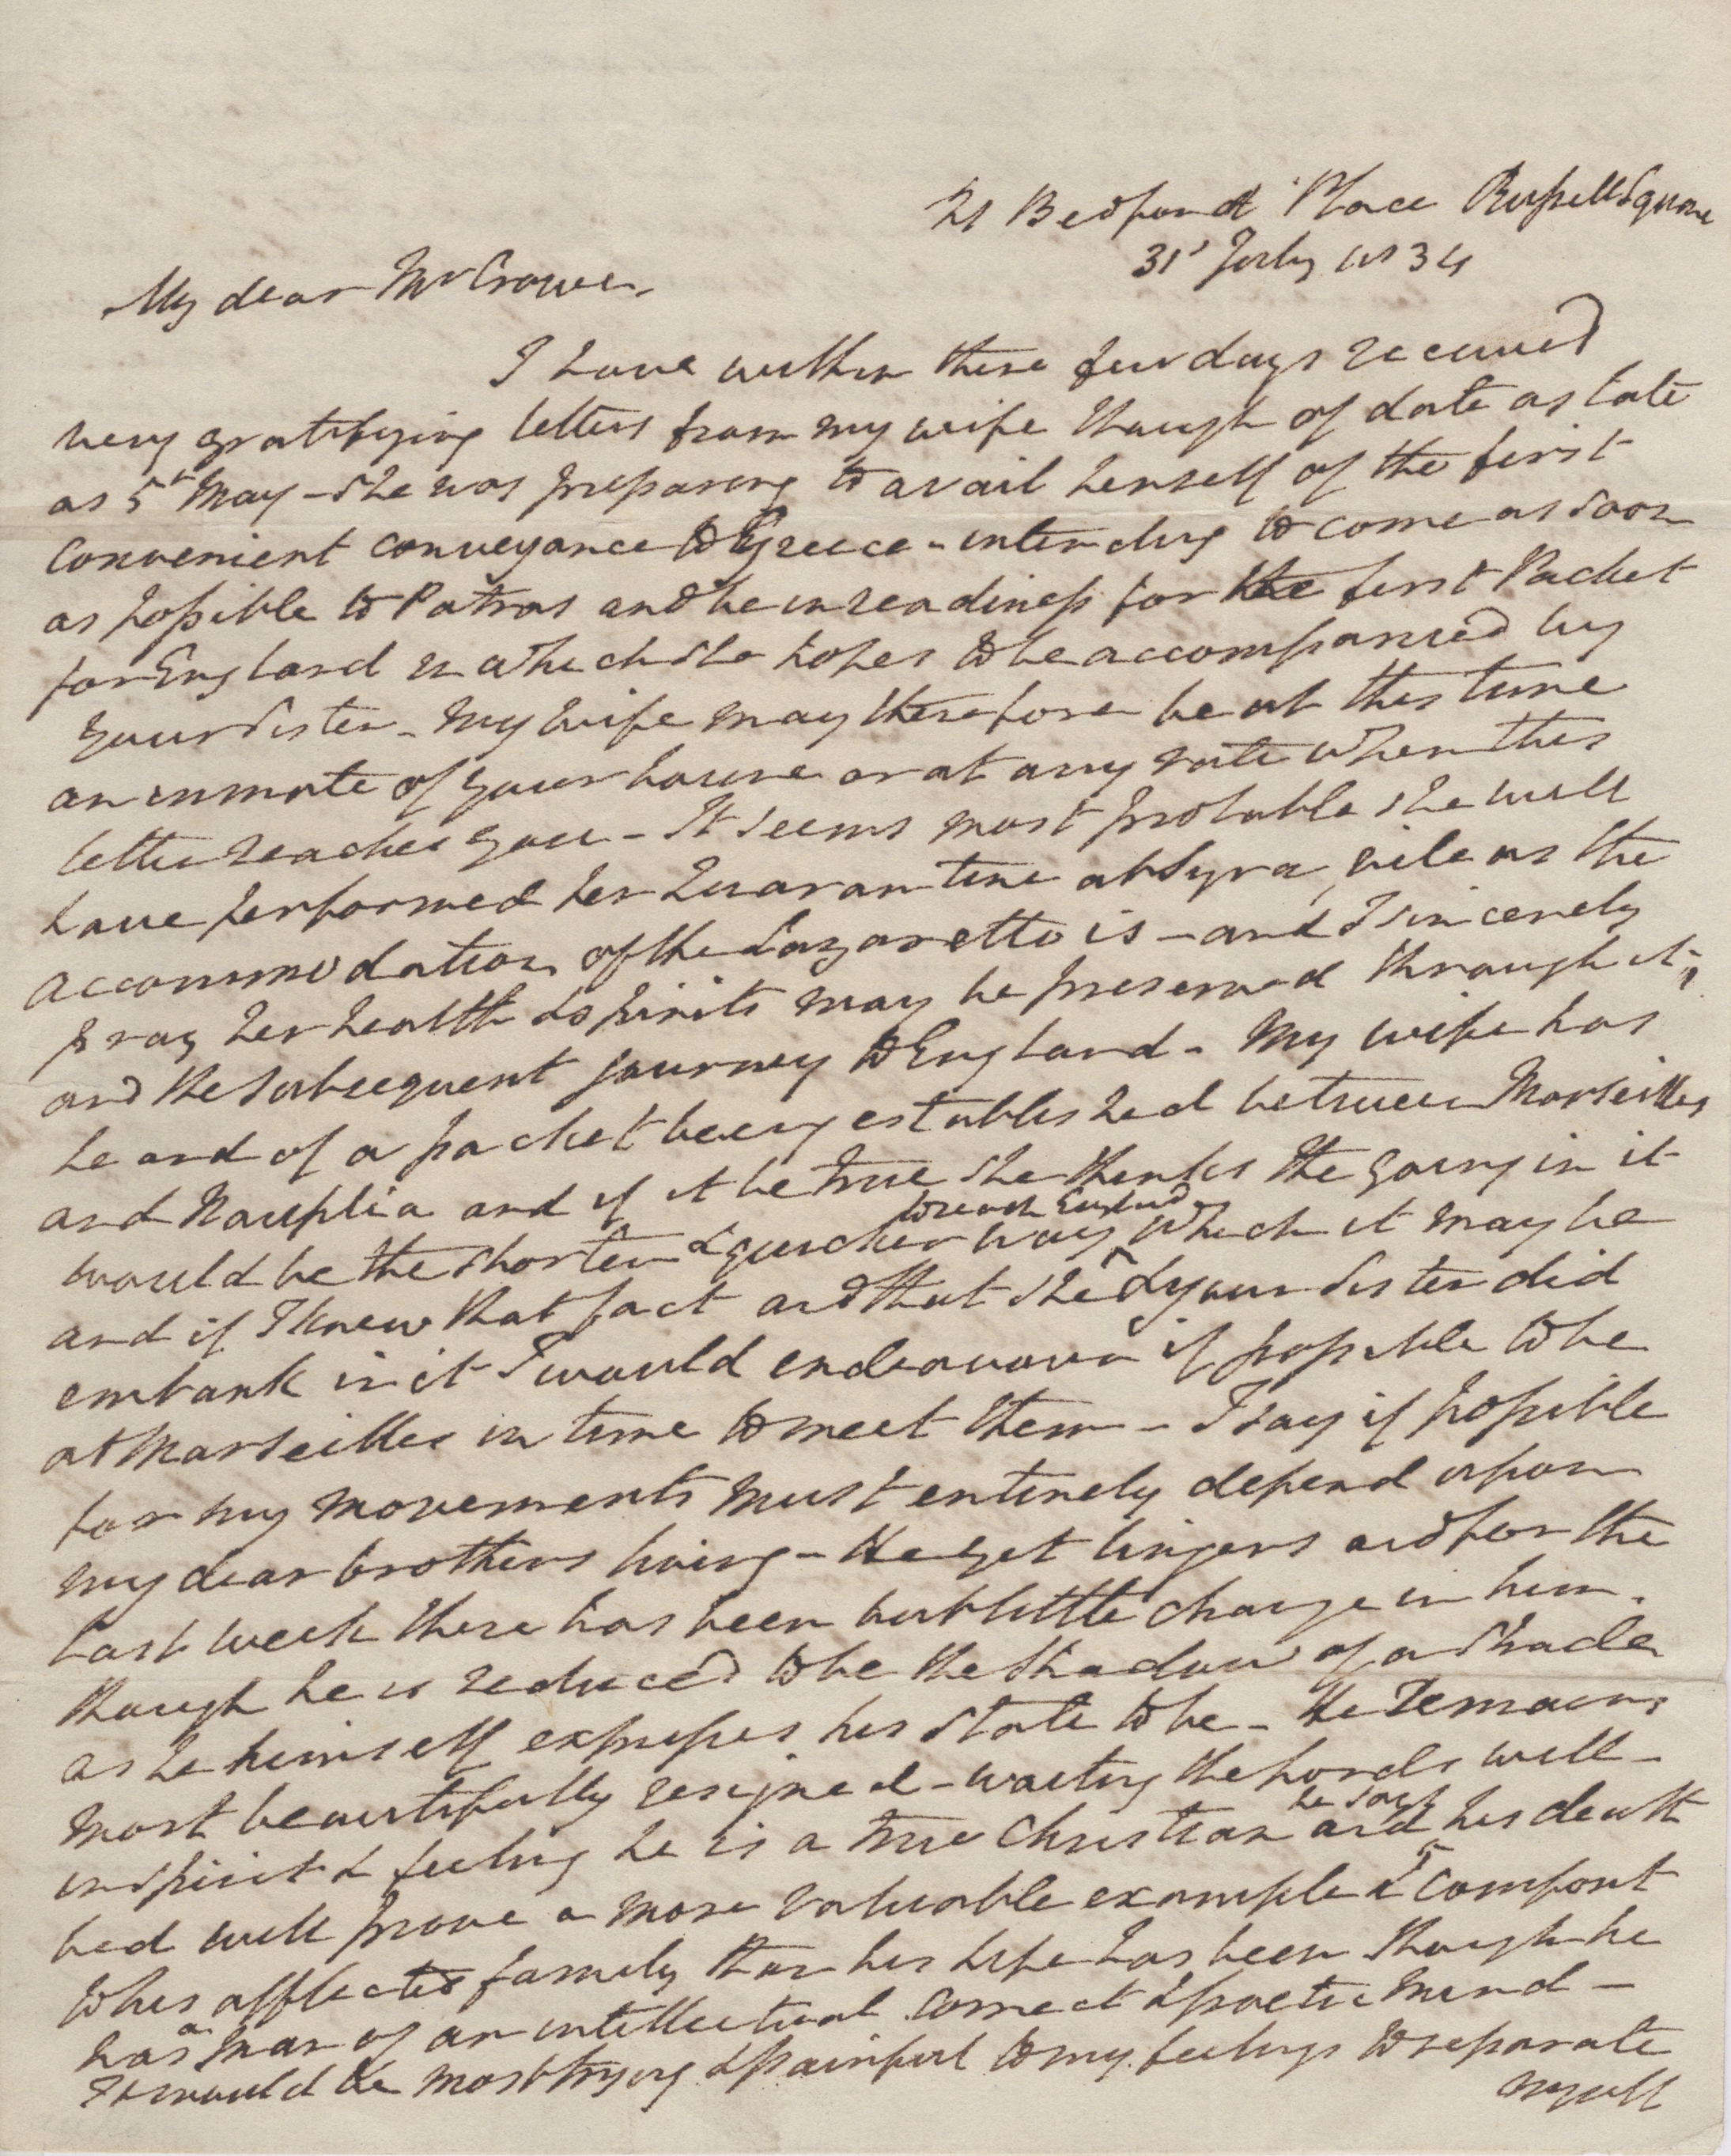 21 Bedford Place Russell Square
31st July 1834
My dear Mr Crowe,
I have within these few days received
very gratifying letters from my wife though of date as late
as 5th May - she was preparing to avail herself of the first
convenient conveyance to Greece - intending to come as soon
as possible to Patras and be in readiness for the first Packet
for England in which she hopes to be accompanied by
your sister - My wife may therefore be at this time
an inmate of your house or at any rate when this
letter reaches you - It seems most probable she will
have performed her Quarantine at Syra, vile as the
accommodation of the Lazaretto is - and I sincerely
pray her health & spirits may be preserved through it,
and the subsequent journey to England - My wife has
heard of a packet being established between Marseilles
and Nauplia and if it be true she thinks the going in it
would be the shorter & quicker way to reach England which it may be
and if I knew that fact and that she & your sister did
embark in it I would endeavour if possible to be
at Marseilles in time to meet them - I say if possible
for my movements must entirely depend upon
my dear brothers living - He yet lingers and for the
last week there has been but little change in him.
though he is reduced to be the shadow of a shade
as he himself expresses his state to be - He remains
most beautifully resigned - waiting the Lords will -
in spirit & feeling he is a true Christian and he says his death
bed will prove a more valuable example & comfort
to his afflicted family than his life has been though he
has a man of an intellectual correct & poetic mind -
It would be most trying & painful to my feelings to separate
myself